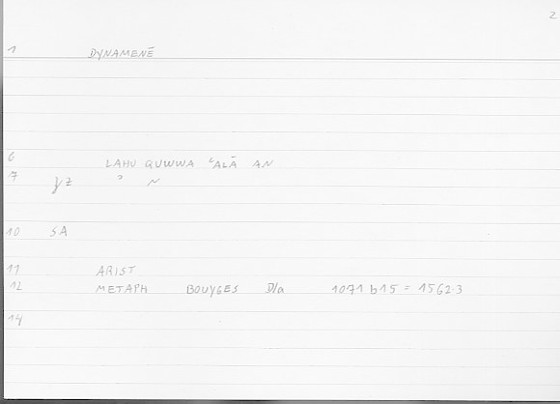 2
1 DYNAMENĒ
6 LAHU QUWWA ʿALĀ AN
7 z ° N
10 SA
11 ARIST
12 METAPH BOUYGES D/a 1071 b15 = 1562.3
14